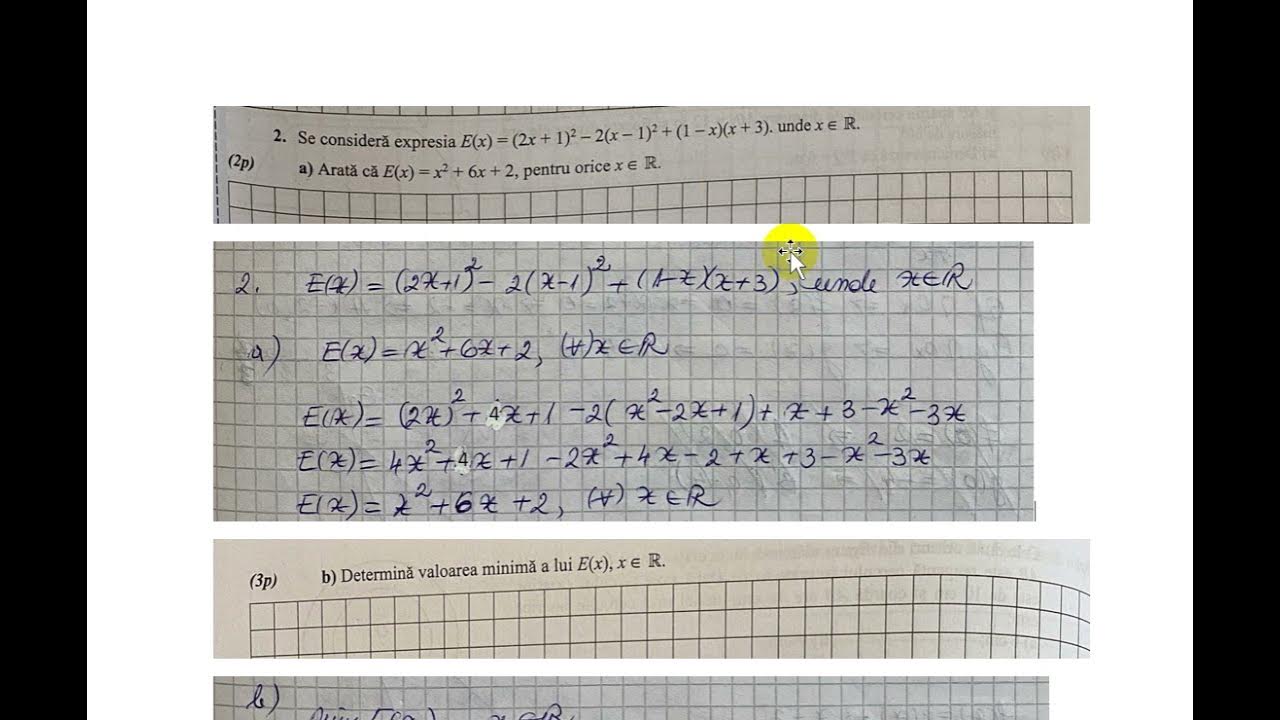 2. Se consideră expresia E(x) = (2x + 1)² – 2(x – 1)² + (1 – x)(x + 3). unde x ∈ ℝ.
(2p) a) Arată că E(x) = x² + 6x + 2, pentru orice x ∈ ℝ.
2. E(x) = (2x+1)² - 2(x-1)² + (1-x)(x+3), unde x∈ℝ
a) E(x) = x²+6x+2, (∀)x∈ℝ
E(x) = (2x)²+4x+1 -2(x²-2x+1)+ x+3-x²-3x
E(x) = 4x²+4x+1 -2x²+4x-2+x+3-x²-3x
E(x) = x²+6x+2, (∀) x∈ℝ
(3p) b) Determină valoarea minimă a lui E(x), x ∈ ℝ.
b)